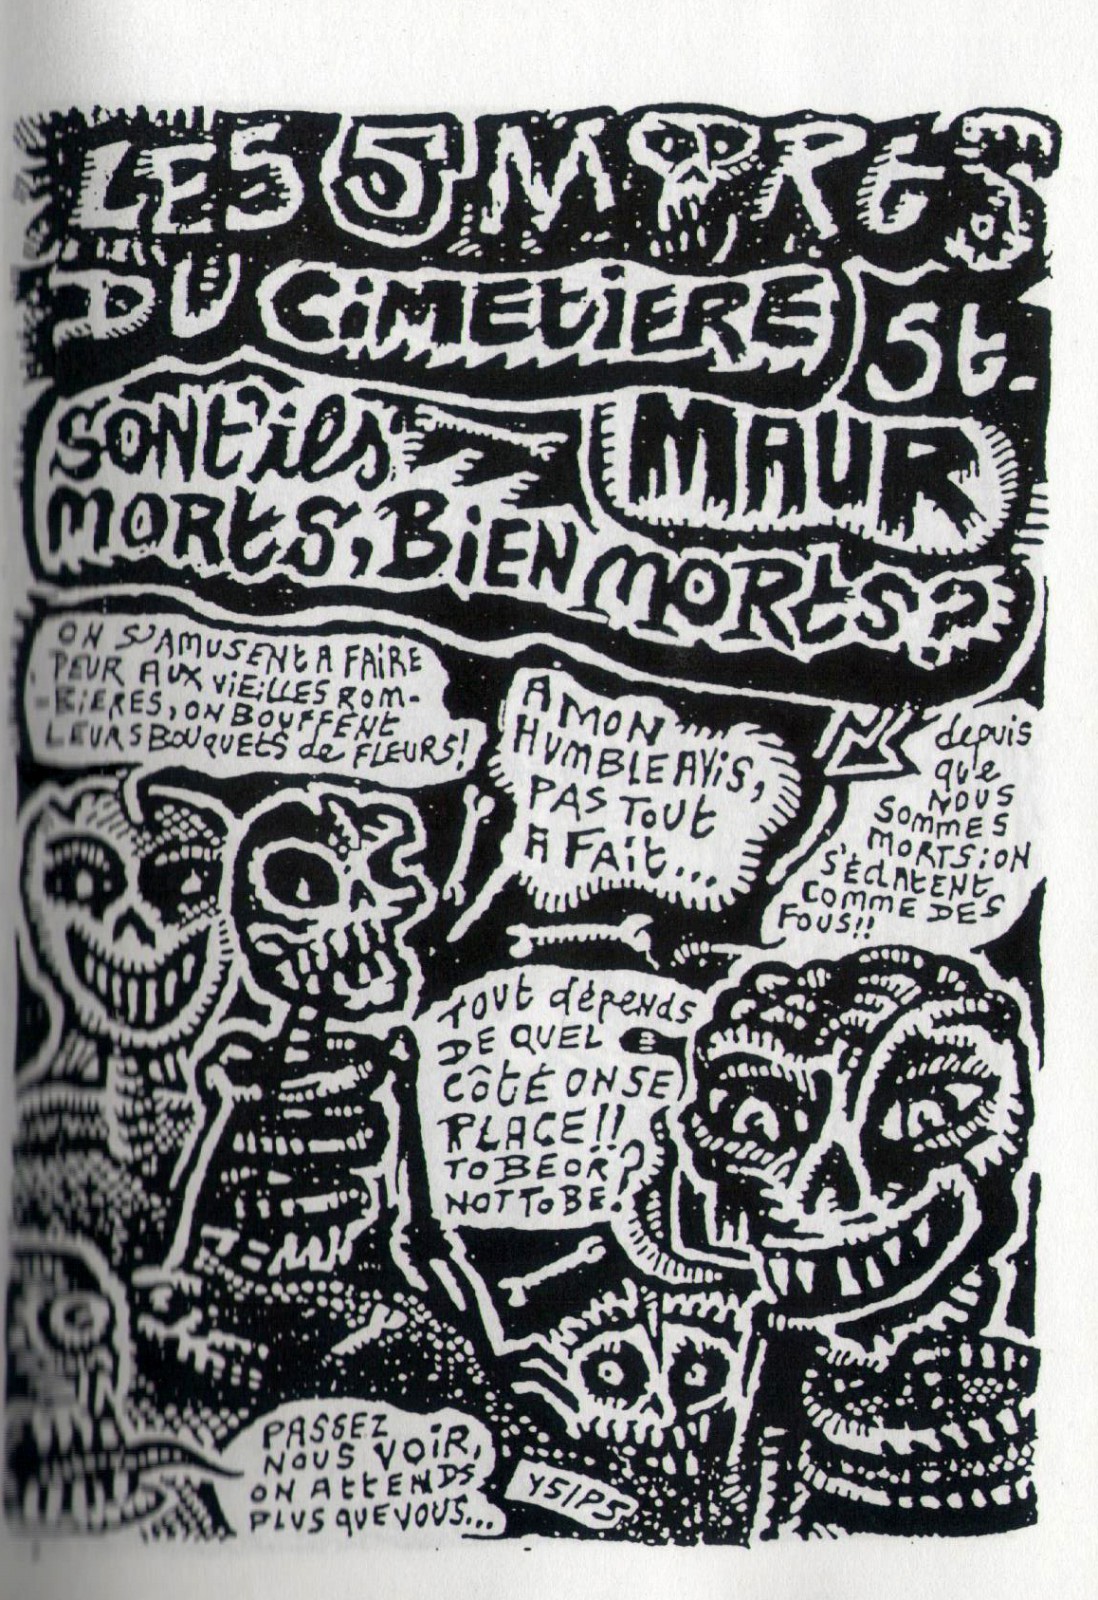 LES 5 MORtS
DU CiMEtiERE St-
MAUR
SONt'ils
MORtS, BiEN MORtS?
ON S'AMUSENt A FAIRE
PEUR AUX VIEILLES ROM-
-BIERES, ON BOUFFENt
LEURS BOUQUEtS de FLEURS!
A MON
HUMBLE AVIS,
PAS TOUt
A FAit...
depuis
que
NOUS
SOMMES
MORTS: ON
S'ÉCLATENT
COMME DES
FOUS!!
TOUT dépENdS
DE QUEL
CÔtÉ ON SE
PLACE!!
TO BE OR
NOT TO BE?
PASSEZ
NOUS VOIR,
ON AttENDS
PLUS QUE VOUS...
YSIPS